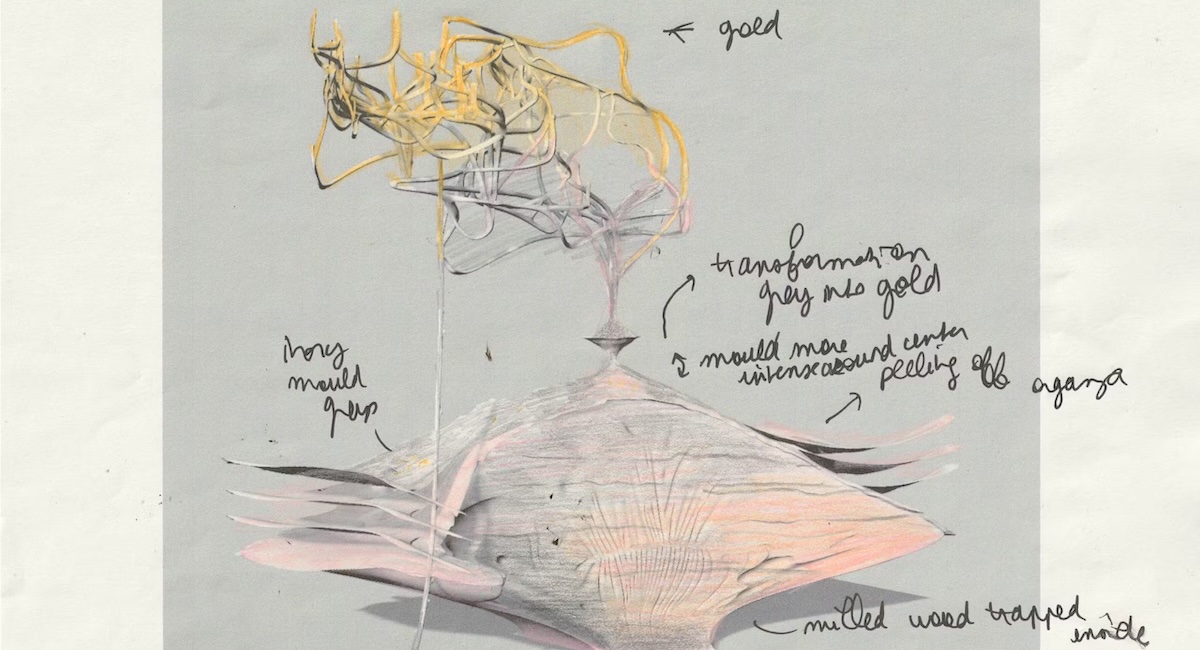 gold
transformation
grey into gold
mould more
intense around center
peeling off organza
ivory
mould
grey
milled wood trapped
inside